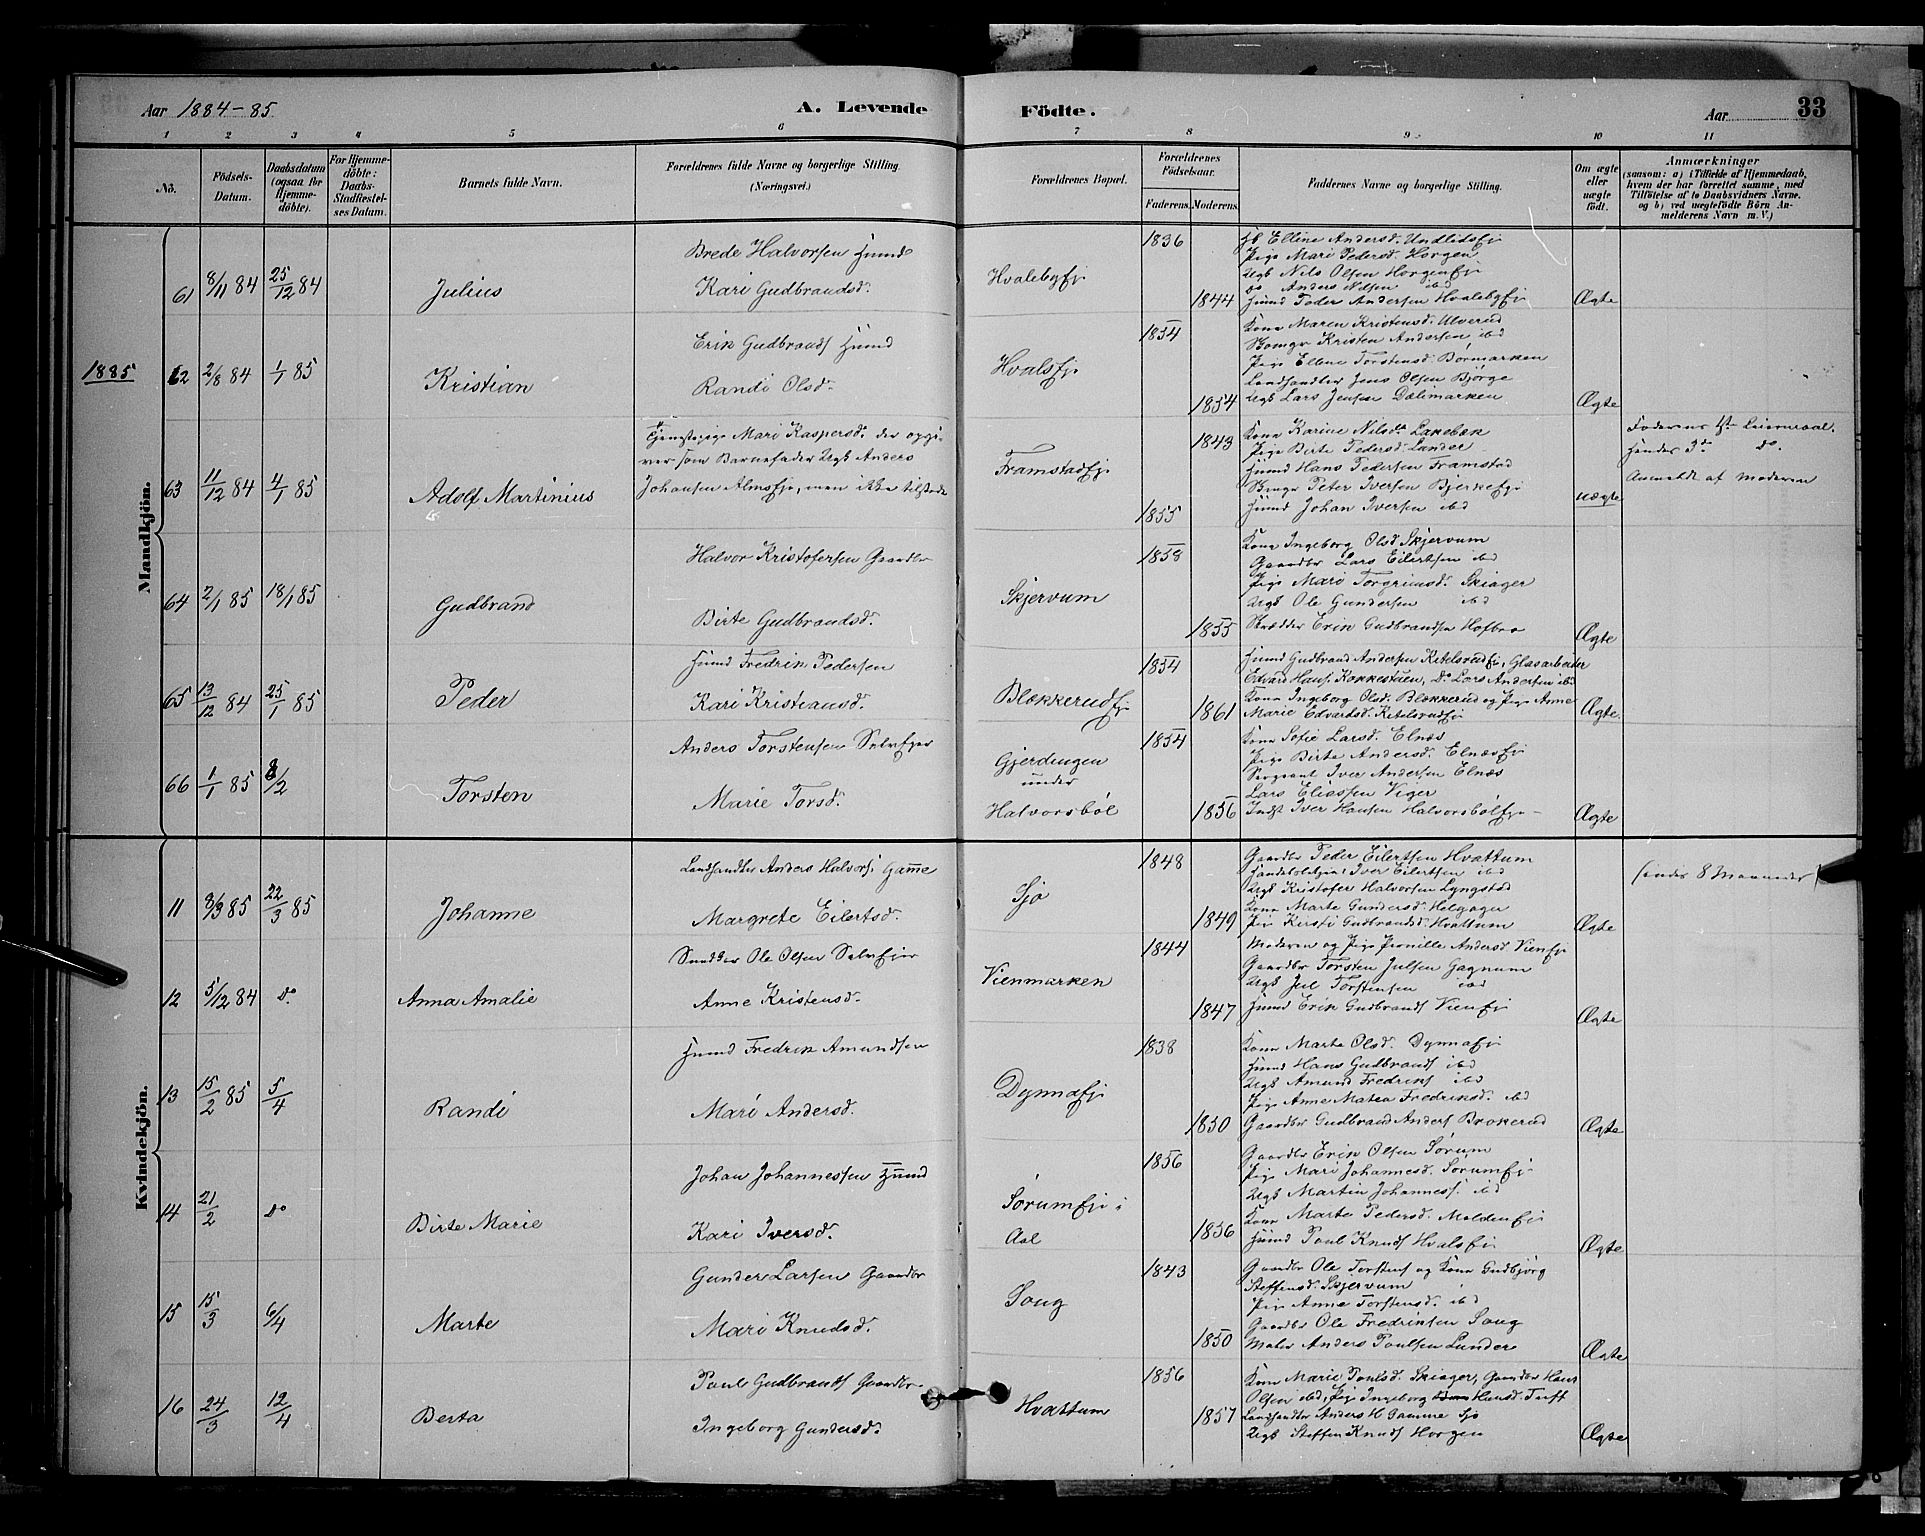 Aar 1884-85. A. Levende Födte. Aar 33
1 2 3 4 5 6 7 8 9 10 11
No. Födsels-Datum. Daabsdatum (ogsaa for Hjemmedöbte). For Hjemmedöbte: Daabs-Stadfæstelses Datum. Barnets fulde Navn. Forældrenes fulde Navne og borgerlige Stilling. (Næringsvei.) Forældrenes Bopæl. Forældrenes Födselsaar. Faderens. Moderens. Faddernes Navne og borgerlige Stilling. Om ægte eller uægte födt. Anmærkninger (saasom: a) i Tilfælde af Hjemmedaab, hvem der har forrettet samme, med Tilföielse af to Daabsvidners Navne. og b) ved uægtefödte Börn Anmelderens Navn m. V.)
Mandkjön.
61 8/11 84 25/12 84 Julius
Brede Halvorsen Huusmd
Kari Gudbrandsd.
Hvalebyej
1836
1844
Elline Andersd. Undlidsej
Pige Mari Pedersd. Horgen
Ugk Nils Olsen Horgenej
do Anders Nilsen ibd
Huusmd Peder Andersen Hvalebyej
Ægte
1885
62 2/8 84 1/1 85 Kristian
Erik Gudbrands Huusmd
Randi Olsd.
Hvalsej
1854
1854
Kone Maren Kristensd. Ulverud
Kristen Andersen ibd
Pige Elline Torstensd. Börmarken
Landhandler Jens Olsen Bjørge
Ugk Lars Jensen Dælimarken
Ægte
63 11/12 84 4/1 85 Adolf Martinius
Tjenestepige Mari Kaspersd. der opgi-
ver som Barnefader Ugk Anders
Johansen Almsej, men ikke tilstede
Framstadej
1843
1855
Kone Karine Nilsdt. Lakebæk
Pige Birte Pedersd. Lander
Huusmd Hans Pedersen Framstad
Peter Iversen Bjerkeej
Huusmd Johan Iversen ibd
uægte
Faderens 1ste Leiermaal,
hendes 3de do.
Anmeldt af Moderen
64 2/1 85 18/1 85 Gudbrand
Halvor Kristofersen Gaardbr
Birte Gudbrandsd.
Skjervum
1858
1855
Kone Ingeborg Olsd Skjervum
Gaardbr Lars Eilertsen ibd
Pige Mari Torgrimsd. Skiager
Ugk Ole Gundersen ibd
Skrædder Erik Gudbrandsen Hofbro
Ægte
65 13/12 84 25/1 85 Peder
Huusmd Fredrik Pedersen
Kari Kristiansd.
Blækkerudej
1854
1861
Huusmd Gudbrand Andersen Ketelsrudej, Glasarbeider
Edvard Hans. Kokkestuen, Do Lars Andersen ibd
Kone Ingeborg Olsd. Blækkerud og Pige Anne
Marie Edvartsd. Ketelsrudej
Ægte.
66 1/1 85 8/2 Torsten
Anders Torstensen Selveier
Marie Torsd.
Gjerdingen
under
Halvorsböl
1854
1856
Kone Sofie Larsd. Elnæs
Pige Birte Andersd. Elnæsej
Sergeant Iver Andersen Elnæs
Lars Eliassen Viger
Indst Iver Hansen Halvorsbölej
Ægte
Kvindekjön.
11 8/3 85 22/3 85 Johanne
Landhandler Anders Halvors. Gamme
Margrete Eilertsd.
Sjo
1848
1849
Gaardbr Peder Eilertsen Hvattum
Iver Eilertsen ibd
Ugk Kristofer Halvorsen Lyngstad
Kone Marte Gundersd. Helgager
Pige Kirsti Gudbrandsd. Hvattum
Ægte
(under 8 Maaneder)
12 5/12 84 do. Anna Amalie
Ole Olsen Selveier
Anne Kristensd.
Vienmarken
1844
1847
Moderen og Pige Pernille Andersd Vienej
Gaardbr Torsten Julsen Gagnum
Ugk Jul Torstensen ibd
Huusmd Erik Gudbrands Vienej
Ægte
13 15/2 85 5/4 Randi
Huusmd Fredrik Amundsen
Mari Andersd.
Dynnaej
1838
1850
Kone Marte Olsd. Dynnaej
Huusmd Hans Gudbrands ibd
Ugk Amund Fredriks ibd
Pige Anne Matea Fredriksd. ibd
Gaardbr Gudbrand Anders Brokerud
Ægte
14 21/2 do Birte Marie
Johan Johannessen Huusmd
Kari Iversd.
Sørumej i
Aal
1856
1856
Gaardbr Erik Olsen Sørum
Pige Mari Johannesd. Sørumej
Ugk Martin Johanness. ibd
Kone Marte Pedersd. Moldenej
Huusmd Paul Knuds Hvalsej
Ægte
15 15/3 6/4 Marte
Gunder Larsen Gaardbr
Mari Knudsd.
Saug
1843
1850
Gaardbr Ole Torstens og Kone Gudbjörg
Steffensd. Skjervum
Pige Anne Torstensd. ibd
Gaardbr Ole Fredriksen Saug
Maler Anders Poulsen Lunder
Ægte
16 24/3 12/4 Berta
Paul Gudbrands Gaardbr.
Ingeborg Gundersd.
Hvattum
1856
1857
Kone Marie Poulsd. Skiager, Gaardbr Hans
Olsen ibd, Pige Ingeborg Hansd. Tuft
Landhandler Anders H Gamme Sjo
Ugk Steffen Knuds Horgen
Ægte